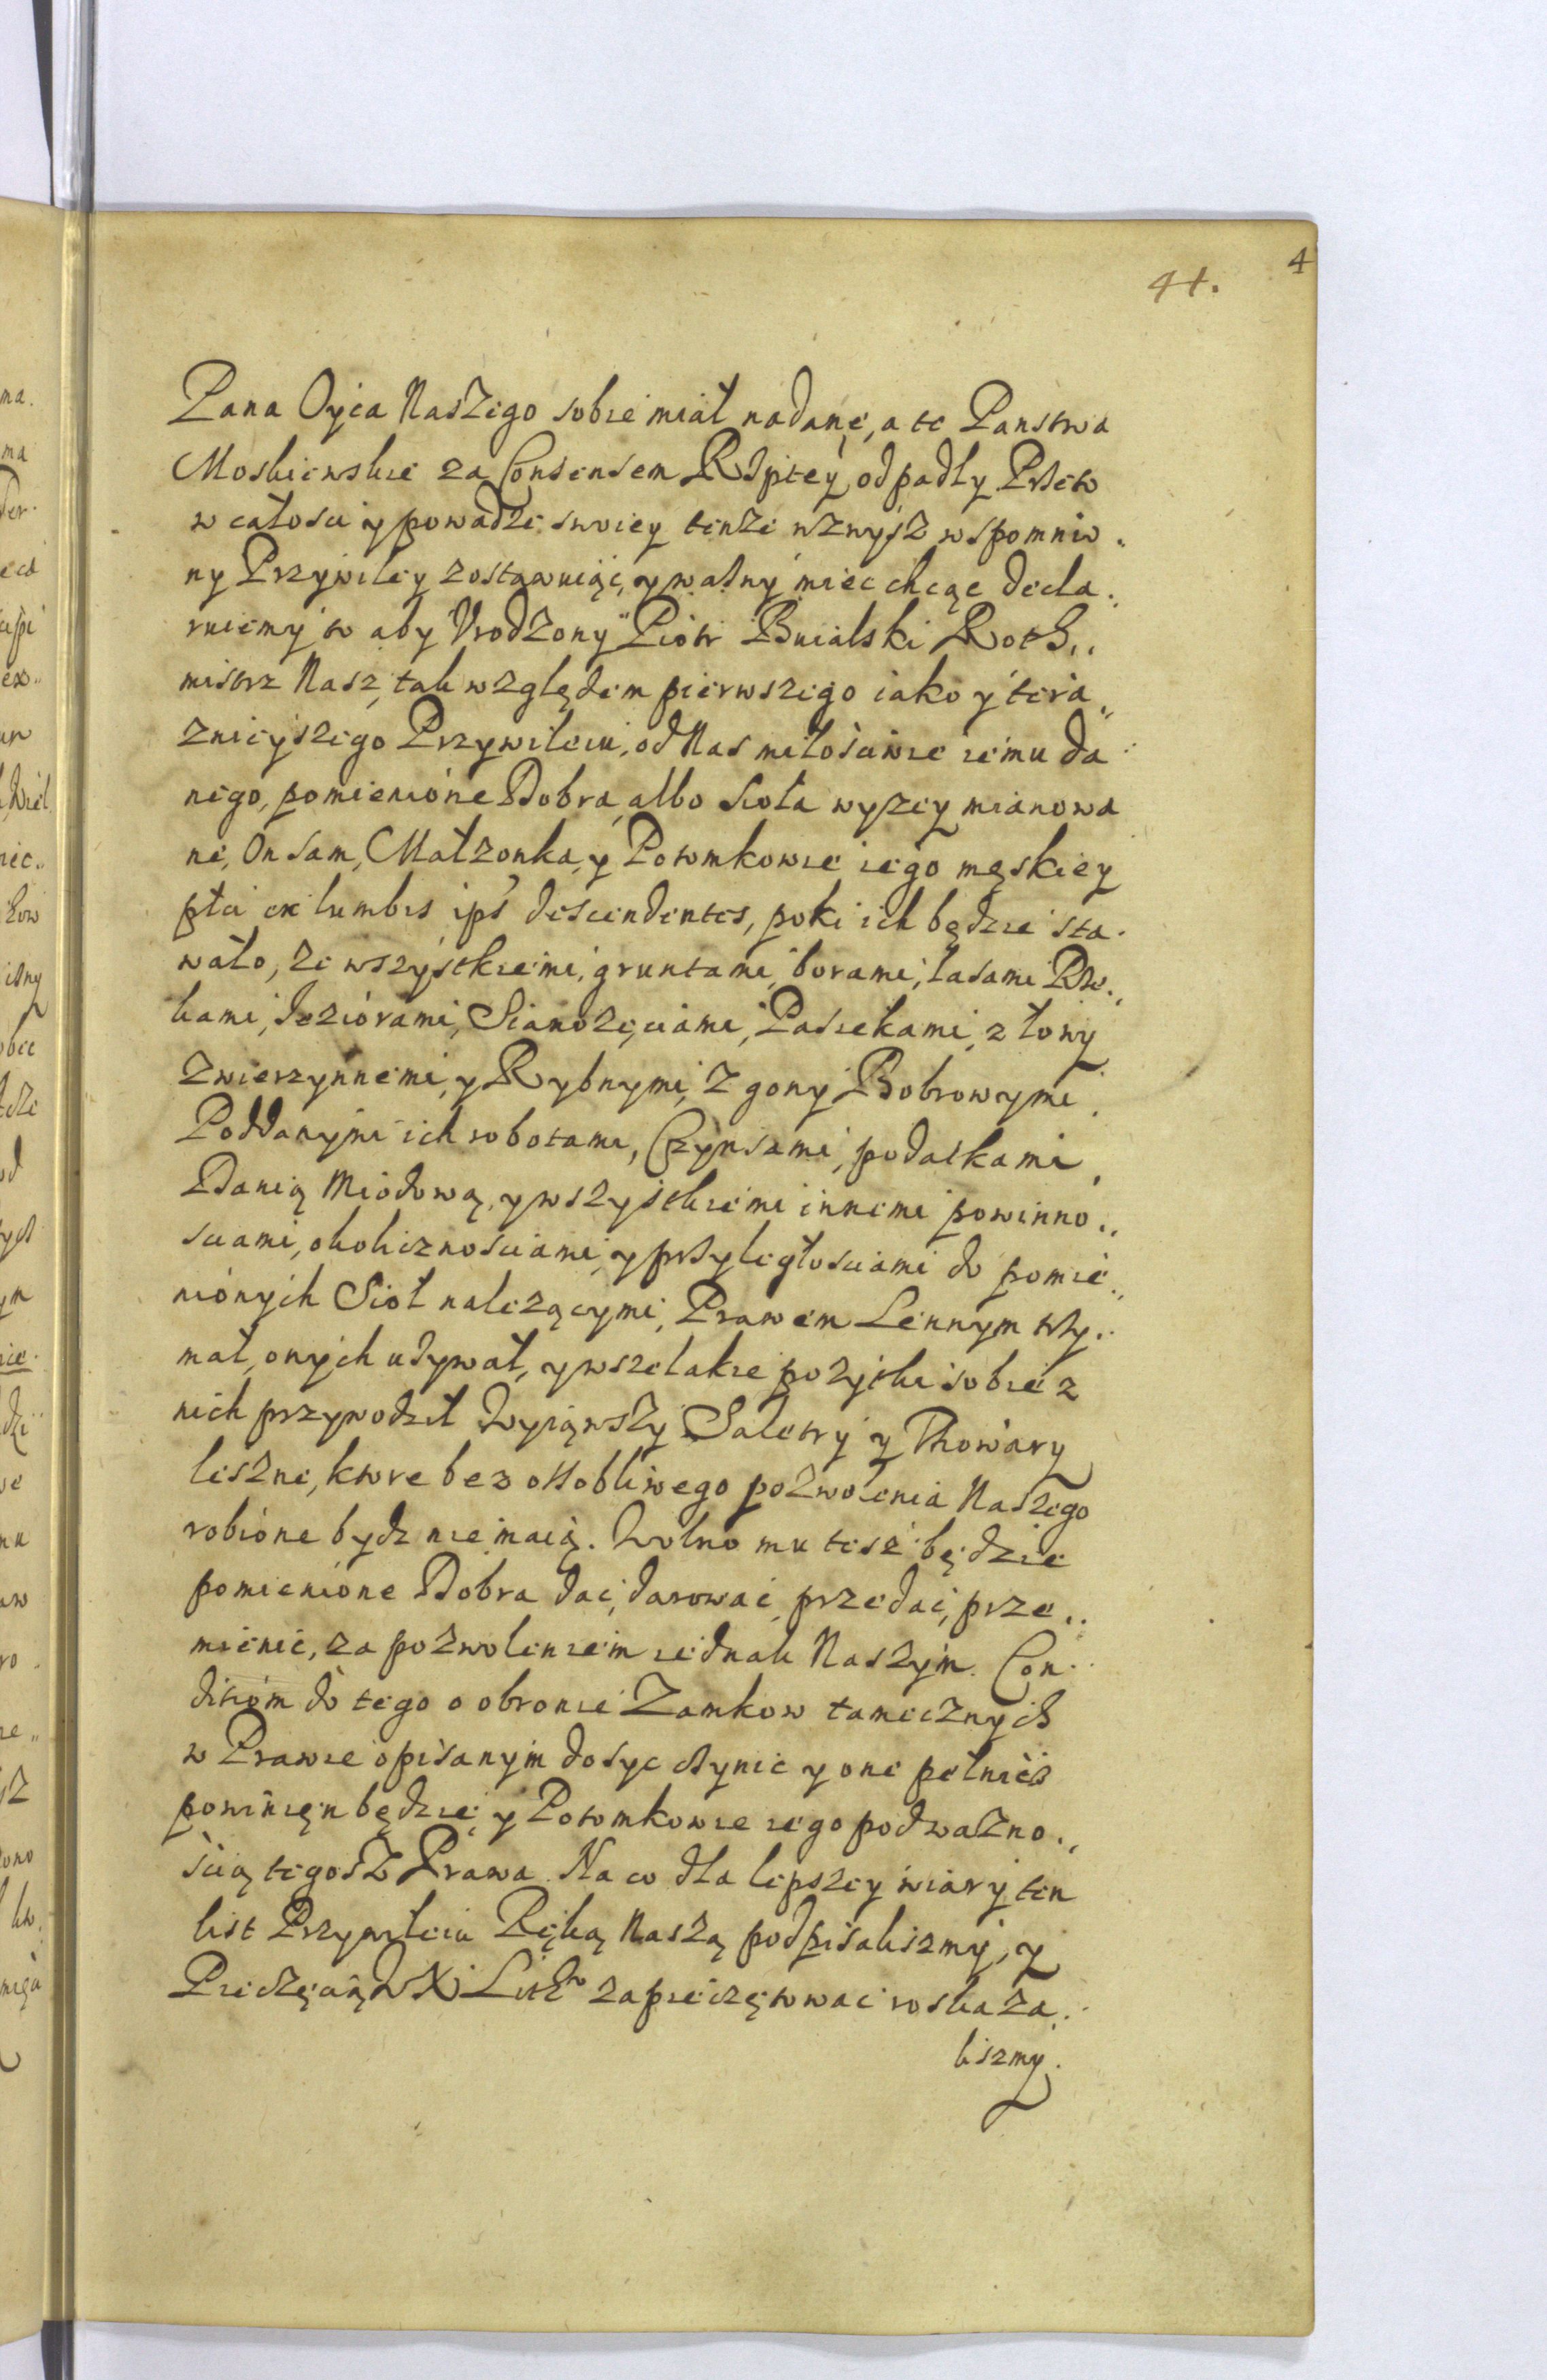 41.
4
Pana Oyca Naszego sobie miał nadane, a te Panstwa
Moskiewskie za Consensem Rzpltey odpadły Przeto
w całosci y powadze swoiey tenże wzwysz wspomnio„
ny Przywiley zostawuiąc, y ważny miec chcąc decla„
ruiemy to aby Vrodzony Piotr Buialski Roth„
mistrz Nasz, tak względem pierwszego iako y tera„
znieyszego Przywileiu, od Nas miłościwie iemu da
nego, pomienione Dobra, albo Sioła wyzey mianowa
ne, On sam, Małzonka, y Potomkowie iego męskiey
płci ex lumbis ips' descendentes, poki ich będzie sta„
wało, ze wszystkiemi, gruntami, borami, lasami Rze„
kami, Jeziorami, Sianożęciami, Pasiekami, z łowy
Zwierzynnemi, y Rybnymi, z gony Bobrowymi
Poddanymi ich robotami, Czynsami, podatkami,
Danią Miodową, y wszystkiemi innemi powinno„
sciami, okolicznościami, y przyległosciami do pomie„
nionych Sioł należącymi, Prawem Lennym trzy„
mał, onych używał, y wszelakie pożytki sobie z
nich przywodził Wyiąwszy Saletry y Thowary
leszne, ktore bez ossobliwego pozwolenia Naszego
robione bydz nie maią. Wolno mu tesz będzie
pomienione Dobra dać, darować, przedać, prze„
mienić, za pozwoleniem iednak Naszym. Con„
ditiom do tego o obronie Zamkow tamecznych
w Prawie opisanym dosyc czynic y one pełnić
powinięn będzie, y Potomkowie iego pod ważno„
ścią tegosz Prawa. Na co dla lepszey wiary ten
list Przywileiu Ręką Naszą podpisaliszmy, y
Pieczęcią WX Litto zapieczętować roskaza„
liszmy.